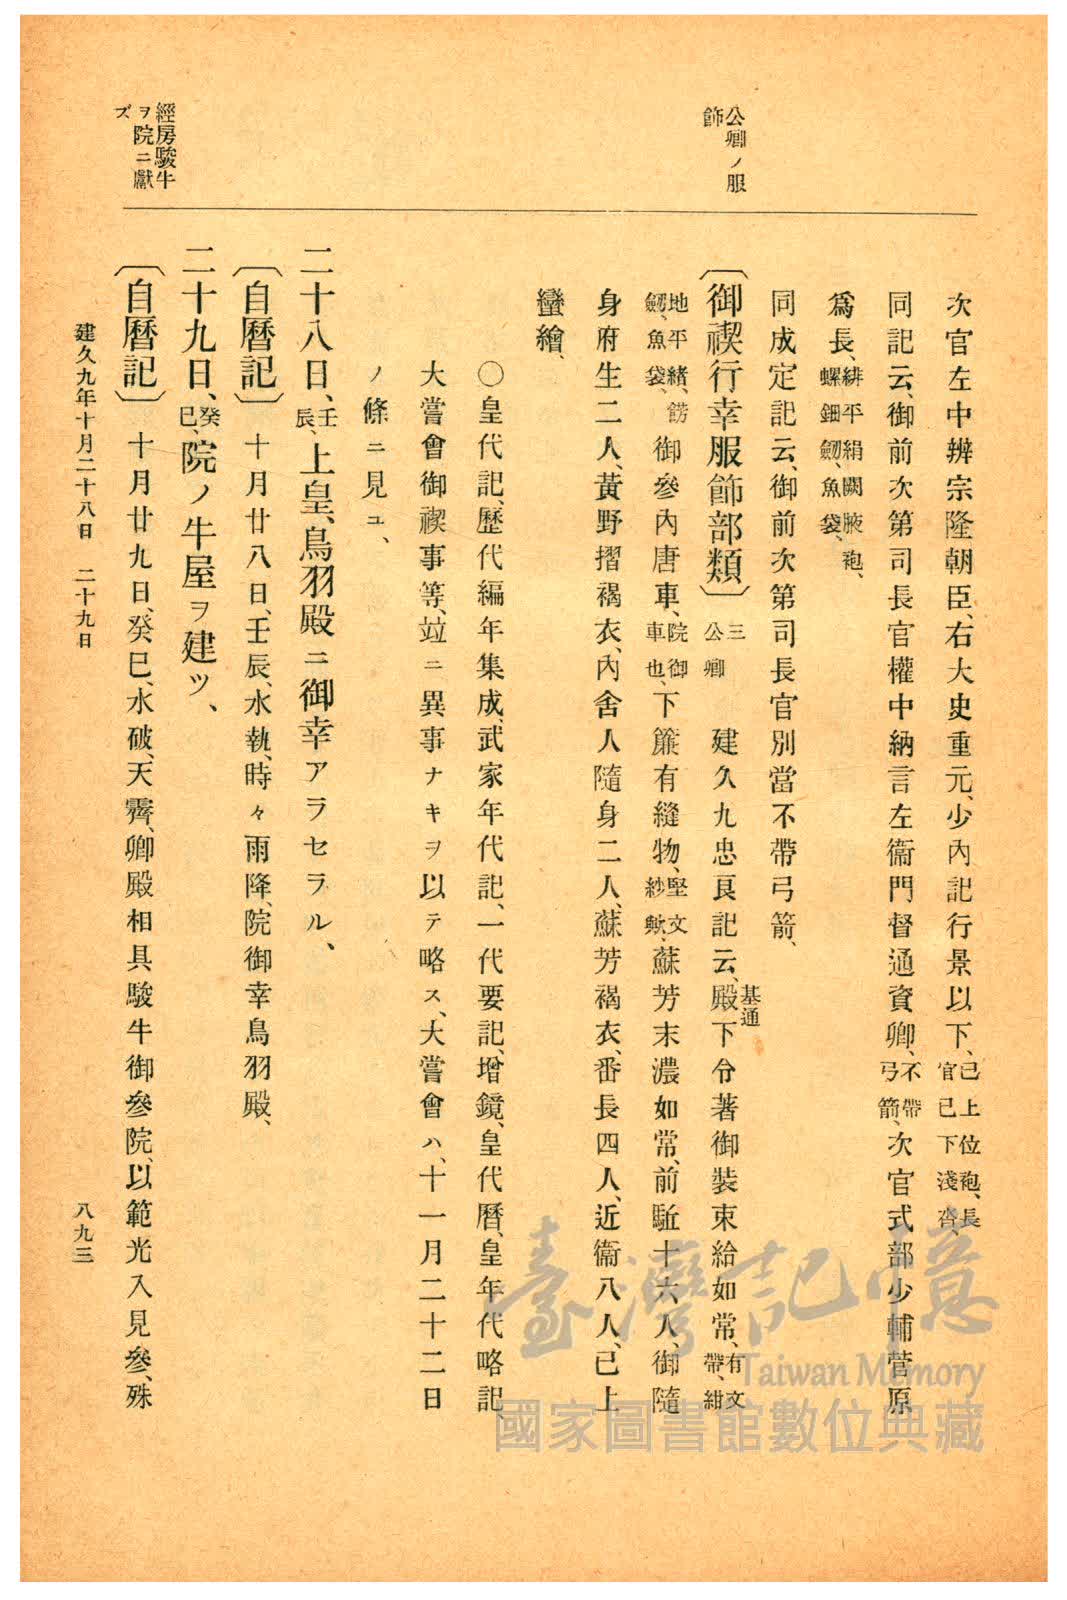 公卿ノ服
飾
經房駿牛
ヲ院ニ獻
ズ
次官左中辨宗隆朝臣、右大史重元、少內記行景以下、已上位袍、長官已下淺沓、
同記云、御前次第司長官權中納言左衞門督通資卿、不帶弓箭、次官式部少輔菅原
爲長、緋平絹闕腋袍、螺鈿劔、魚袋、
同成定記云、御前次第司長官別當不帶弓箭、
〔御禊行幸服飾部類〕三公卿 建久九忠良記云、殿下基通令著御裝束給如常、有文帶、紺
地平緒、餝劔、魚袋、御參內唐車、院御車也、下簾有縫物、堅文紗歟、蘇芳末濃如常、前駈十六人、御隨
身府生二人、黃野摺褐衣、內舍人隨身二人、蘇芳褐衣、番長四人、近衞八人、已上
蠻繪、
〇皇代記、歷代編年集成、武家年代記、一代要記、增鏡、皇代曆、皇年代略記、
大嘗會御禊事等、竝ニ異事ナキヲ以テ略ス、大嘗會ハ、十一月二十二日
ノ條ニ見ユ、
二十八日、壬辰、上皇、鳥羽殿ニ御幸アラセラル、
〔自曆記〕十月廿八日、壬辰、水執、時々雨降、院御幸鳥羽殿、
二十九日、癸巳、院ノ牛屋ヲ建ツ、
〔自曆記〕十月廿九日、癸巳、水破、天霽、卿殿相具駿牛御參院、以範光入見參、殊
建久九年十月二十八日 二十九日
八九三
臺灣記憶
Taiwan Memory
國家圖書館數位典藏